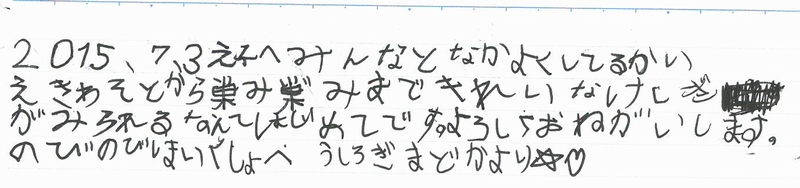 2015、7、3えきへみんなとなかよくしてるかい
えきわそとから巣み巣みまできれいなけしきを
がみられるなんてはじめてですよろしらおねがいします。
のびのびほいくしょへ うしろぎまどかより☆♡